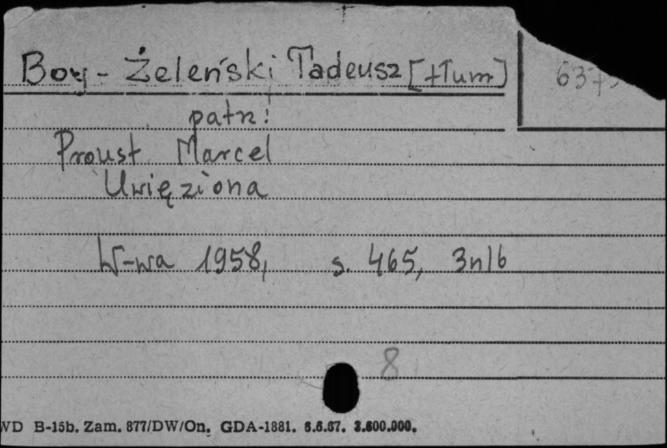 Boy-Żeleński Tadeusz [tłum] 6375
patrz:
Proust Marcel
Uwięziona
W-wa 1958, s. 465, 3nlb
8
WD B-15b. Zam. 877/DW/On. GDA-1881. 6.6.67. 3.600.000.